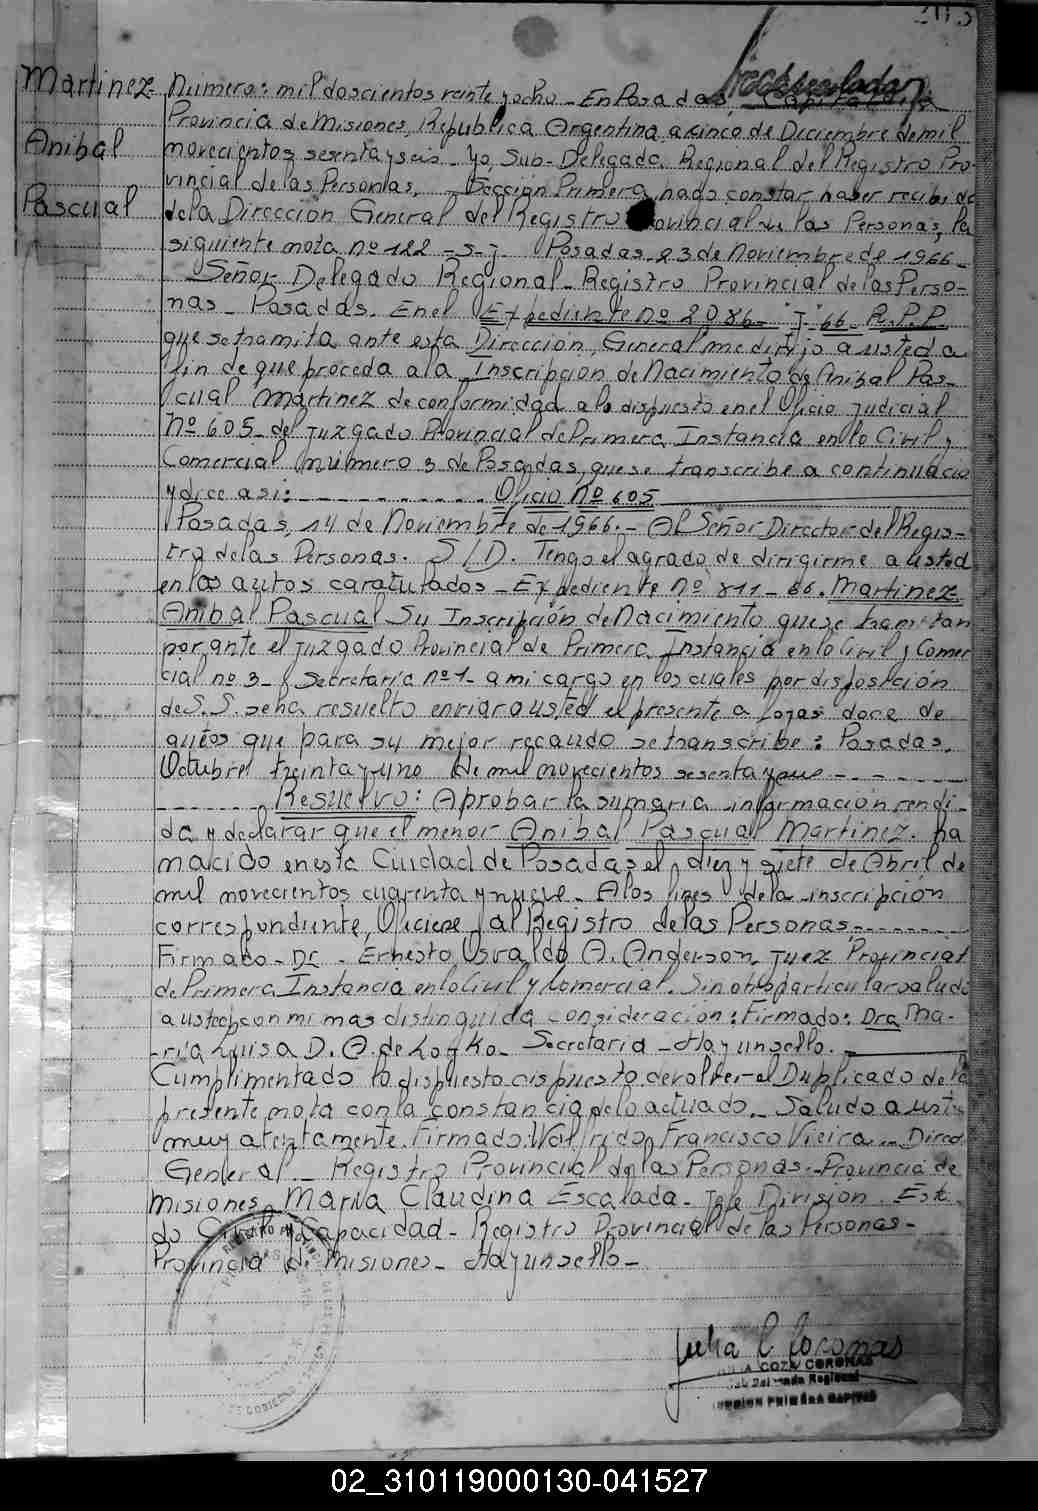 Martinez
Anibal
Pascual
Número: mil doscientos veinte y ocho - En Posadas, Capital de la
Provincia de Misiones, Republica Argentina a cinco de Diciembre de mil
novecientos sesenta y seis - Yo, Sub-Delegada Regional del Registro Pro-
vincial de las Personas, Sección Primera hago constar haber recibido
de la Dirección General del Registro Provincial de las Personas, la
siguiente nota nº 122 - S-j. Posadas 23 de Noviembre de 1966 -
Señor Delegado Regional - Registro Provincial de las Perso-
nas - Posadas. En el Expediente nº 2086 - "J" 66 - R.P.P.
que se tramita ante esta Dirección General me dirijo a usted a
fin de que proceda a la Inscripción de Nacimiento de Anibal Pas-
cual Martinez de conformidad a lo dispuesto en el Oficio judicial
Nº 605 - del juzgado Provincial de Primera Instancia en lo Civil y
Comercial número 3 de Posadas, que se transcribe a continuacio
y dice asi: - - - - - - - - - - Oficio Nº 605
Posadas, 14 de Noviembre de 1966. - Al Señor Director del Regis-
tro de las Personas. S/D. Tengo el agrado de dirigirme a usted
en los autos caratulados - Expediente nº 811 - 66. Martinez
Anibal Pascual Su Inscripción de Nacimiento que se tramitan
por ante el juzgado Provincial de Primera Instancia en lo Civil y Comer
cial nº 3 - Secretaria nº 1 - a mi cargo en los cuales por disposición
de S.S. se ha resuelto enviar a usted el presente a fojas doce de
autos que para su mejor recaudo se transcribe: Posadas,
Octubre treinta y uno de mil novecientos sesenta y seis - - - - - - -
- - - - - - - Resuelvo: Aprobar la sumaria informacion rendi-
da y declarar que el menor Anibal Pascual Martinez. ha
nacido en esta Ciudad de Posadas el diez y siete de Abril de
mil novecientos cuarenta y nueve - A los fines de la inscripción
correspondiente, Oficiese al Registro de las Personas. - - - - - - -
Firmado - Dr. Ernesto Osvaldo A. Anderson, juez Provincial
de Primera Instancia en lo Civil y Comercial. Sin otro particular saludo
a usted con mi mas distinguida consideración: Firmado: Dra Ma-
-ria Luisa D. A. de Loyko - Secretaria - Hay un sello.
Cumplimentado lo dispuesto dispuesto devolver el Duplicado de la
presente nota con la constancia de lo actuado. - Saludo a uste
muy atentamente. Firmado: Walfrido Francisco Vieira - Direct
General. - Registro Provincial de las Personas - Provincia de
Misiones - Maria Claudina Escalada - Jefe Division Esta
do Civil y Capacidad - Registro Provincial de las Personas -
Provincia de Misiones - Hay un sello -
Julia C Coronas
COZA CORONAS
Sub Delegada Regional
SECCION PRIMERA CAPITAL
02_310119000130-041527